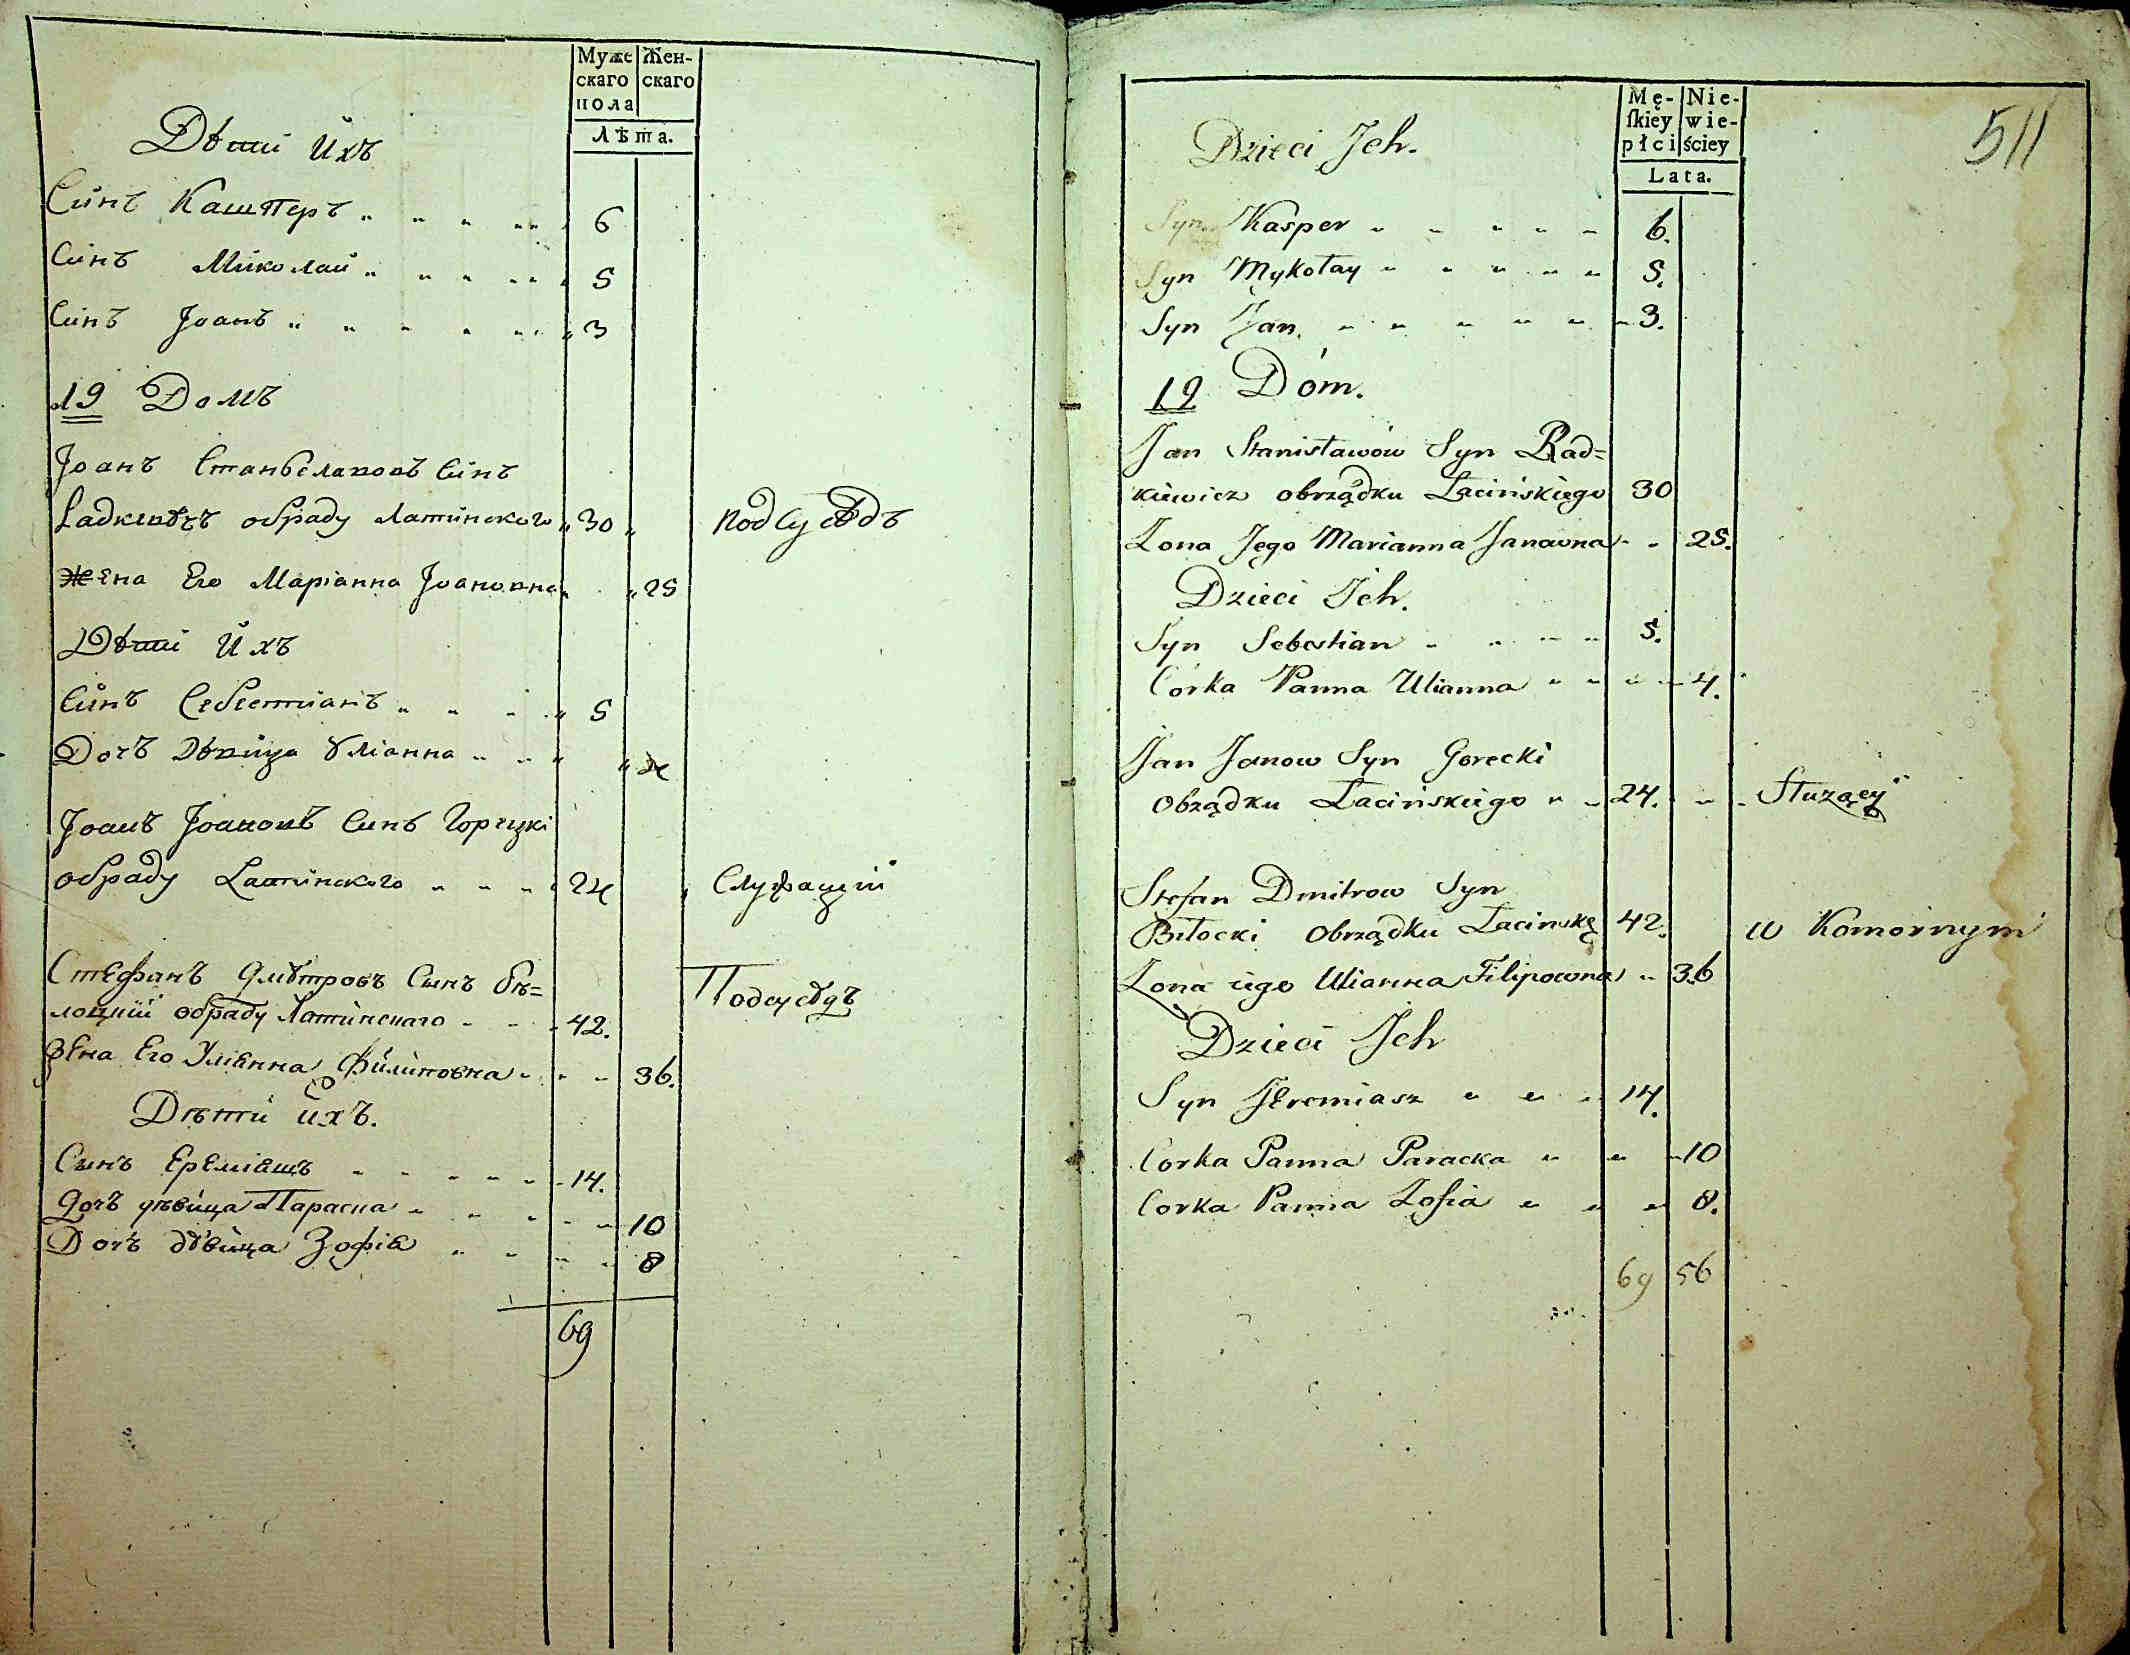 Муже
скаго
пола
Жен-
скаго
Лѣта.
Дѣти Ихъ
Синъ Кашперъ 6
Синъ Миколай 5
Синъ Іоанъ 3
19 Домъ
Іоанъ Станѣславовъ Синъ
Радкевѣчъ обраду Латинского 30 подсусѣдъ
Жена Его Маріанна Іоановна 25
Дѣти Ихъ
Синъ Себестіанъ 5
Дочъ Дѣвица Уліанна 4
Іоанъ Іоановъ Синъ Горецкі
обраду Латинского 24 Служащій
Стефанъ Дмѣтровъ Сынъ Бѣ=
лоцкій обраду Латинскаго 42. Подсусѣдъ
Жена Его Уліанна Филиповна 36.
Дѣти ихъ.
Сынъ Ереміашъ 14.
Дочъ дѣвица Параска 10
Дочъ дѣвица Зофіа 8
69
Mę-
ſkiey
płci
Nie-
wie-
ściey
Lata.
511
Dzieci Jch.
Syn Kasper 6.
Syn Mykołay 5.
Syn Jan. 3.
19 Dóm.
Jan Stanisławów Syn Rad=
kiewicz obrządku Łacińskiego 30
Żona Jego Marianna Janowna 25.
Dzieci Jch.
Syn Sebestian 5.
Córka Panna Ulianna 4.
Jan Janow Syn Gorecki
Obrządku Łacińskiego 24. Słuzący
Stefan Dmitrow Syn
Biłocki Obrządku Łacinskę 42. w Komornym
Żona iego Ulianna Filipowna 36
Dzieci Jch
Syn Jeremiasz 14.
Corka Panna Paracka 10
Corka Panna Zofia 8.
69 56